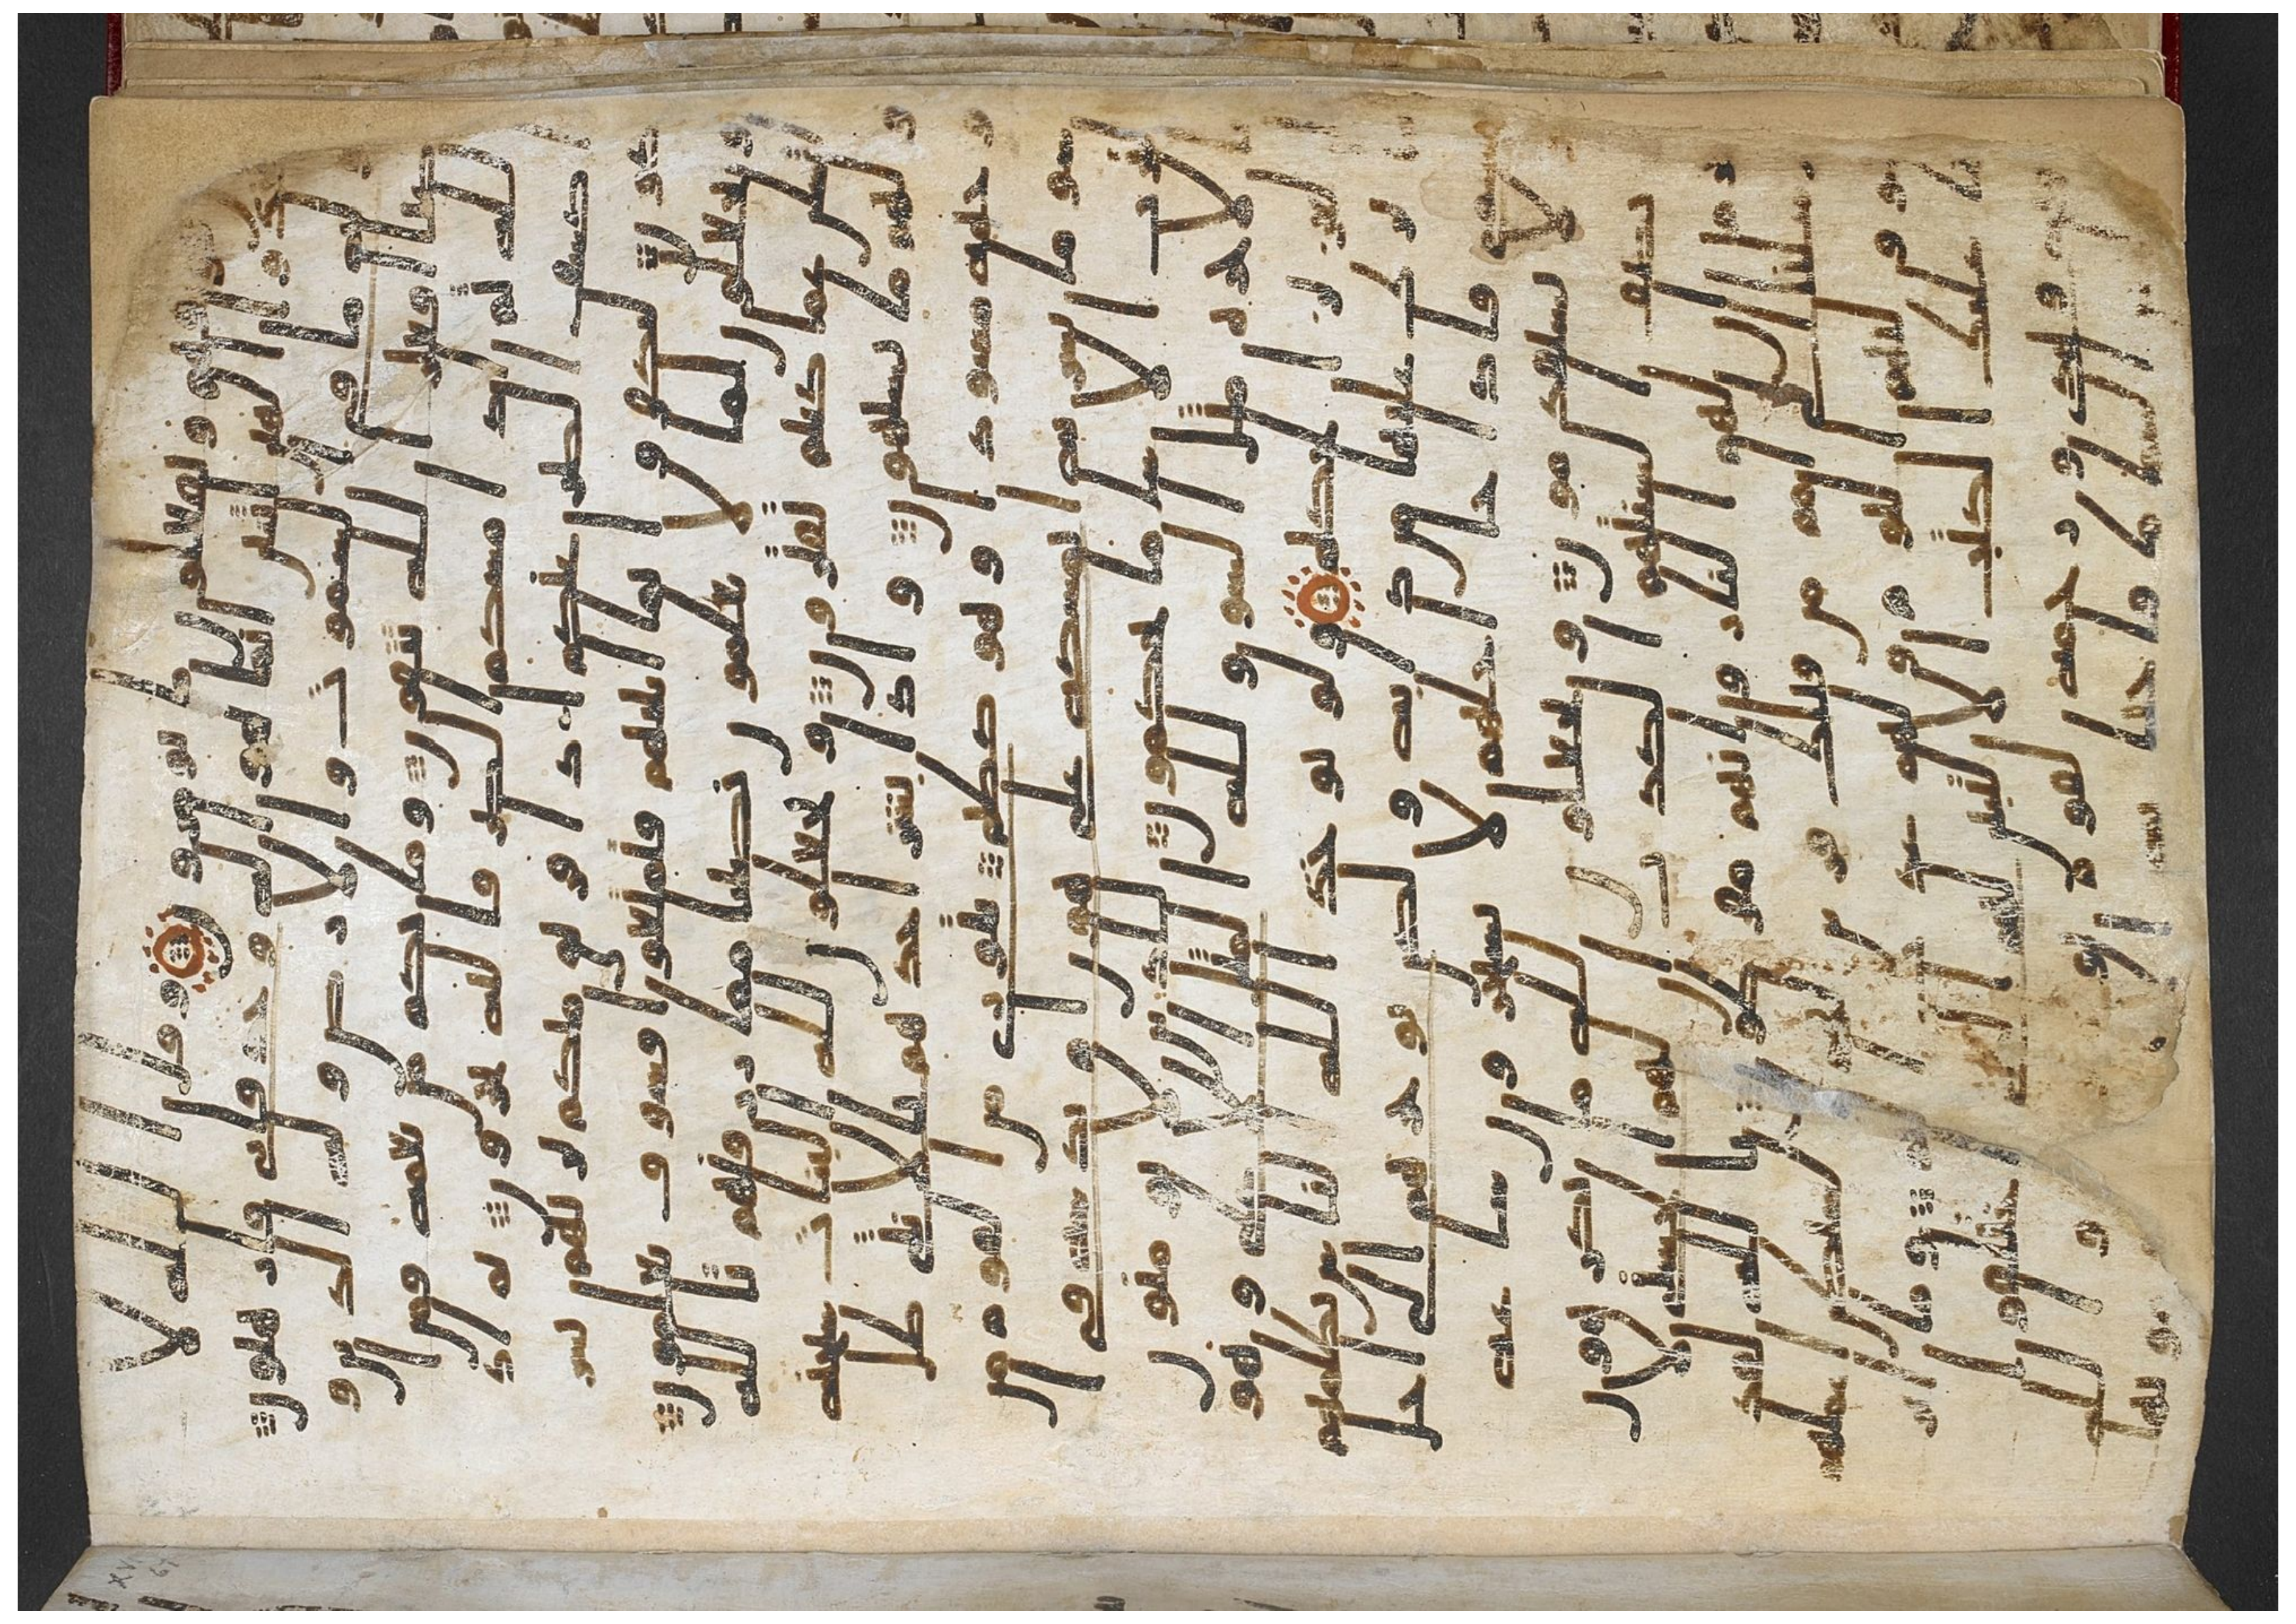 فوقهم ويفعلون ما يومرون وقال الله لا
تتخذوا الهين اثنين انما هو اله وحد فايى فارهبون
وله ما في السموت والارض وله الد
ين واصبا افغير الله تتقون وما بكم من نعمة فمن ا
لله ثم اذا مسكم الضر فاليه تجرون ثم اذ
ا كشف الضر عنكم اذا فريق منكم بربهم يشر
كون ليكفروا بما اتينهم فتمتعوا فسوف تعلمون
ويجعلون لما لا يعلمون نصيبا مما رزقنهم تالله
لتسلن عما كنتم تفترون ويجعلون لله البنت سبحنه
ولهم ما يشتهون واذا بشر احدهم بالانثى ظل
وجهه مسودا وهو كظيم يتورى من القوم من
سو ما بشر به ايمسكه على هون ام يدسه في
التراب الا سا ما يحكمون للذين لا يومنون
بالاخرة مثل السو ولله المثل الاعلى وهو
العزيز الحكيم ولو يوخذ الله الناس بظلمهم
ما ترك عليها من دابة ولكن يوخرهم الى اجل
مسمى فاذا جا اجلهم لا يستخرون ساعة
ولا يستقدمون ويجعلون لله ما يكرهون
وتصف السنتهم الكذب ان لهم الحسنى لا
جرم ان لهم النار وانهم مفرطون تالله لقد
ارسلنا الى امم من قبلك فزين لهم الشيطن اعملهم
فهو وليهم اليوم ولهم عذاب اليم وما ا
نزلنا عليك الكتب الا لتبين لهم الذي اختلفوا
فيه وهدى ورحمة لقوم يومنون والله
انزل من السما ما فاحيا به الارض بعد